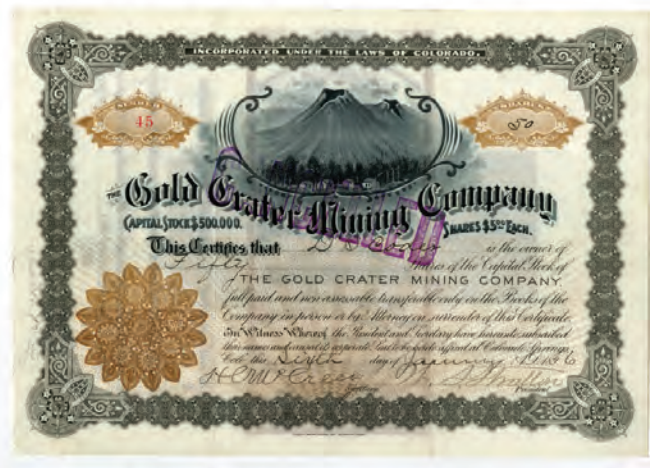 INCORPORATED UNDER THE LAWS OF COLORADO.
NUMBER
45
SHARES
50
THE Gold Crater Mining Company
CAPITAL STOCK $500.000.
SHARES $5.00 EACH.
CANCELLED
This Certifies that
is the owner of
Fifty Shares of the Capital Stock of
THE GOLD CRATER MINING COMPANY
full paid and non assessable transferable only on the Books of the
Company in person or by Attorney on surrender of this Certificate.
In Witness Whereof, the President and Secretary have hereunto subscribed
their names and caused its corporate Seal to be hereto affixed at Colorado Springs,
Colo. this Sixth day of January